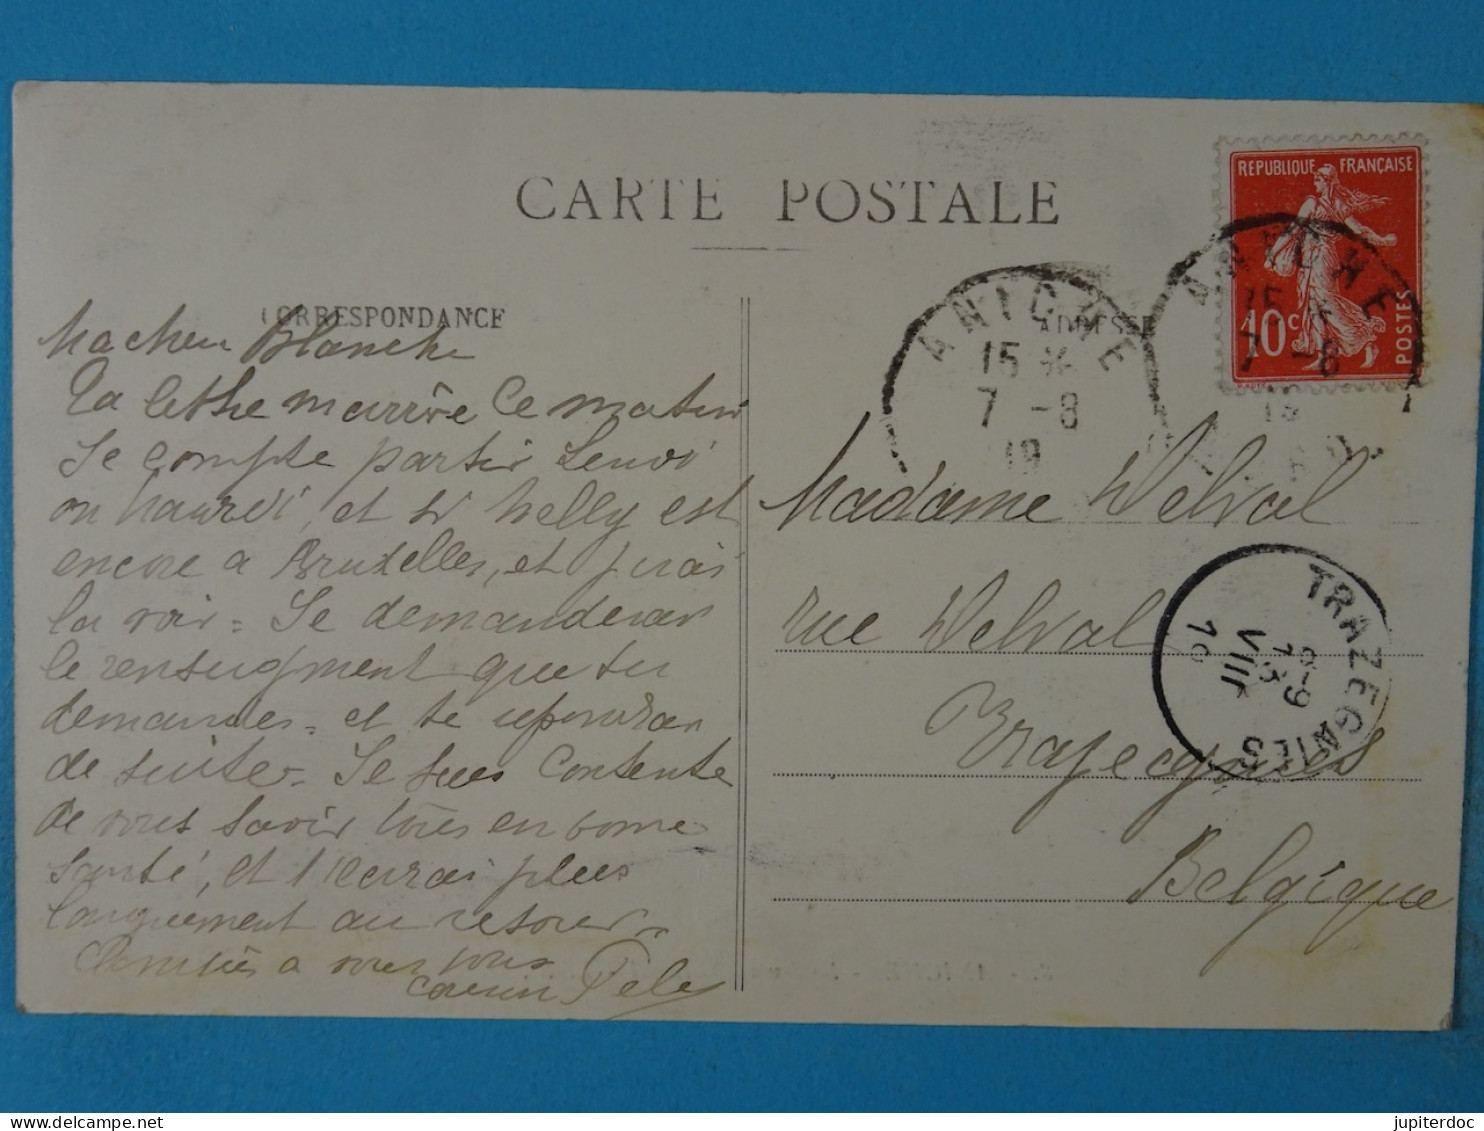 CARTE POSTALE
CORRESPONDANCE
ADRESSE
REPUBLIQUE FRANÇAISE
10c
POSTES
ANICHE
15
7 -8
19
ANICHE
15
7 -8
Ma cher Blanche
Ta lettre m'arrive ce matin
Je compte partir
ou mardi, et si Nelly est
encore a Bruxelles, et j'irai
la voir = Je demanderai
le renseigment que tu
demandes = et te repondrai
de suite = Je suis Contente
de vous savoir tous en bonne
santé, et t'ecrirai plus
longuement au retour =
Amitiés a vous tous
cousin
Madame Delval
rue Delval
Trazegnies
Belgique
TRAZEGNIES
8-9
VIII
jupiterdoc
delcampe.net